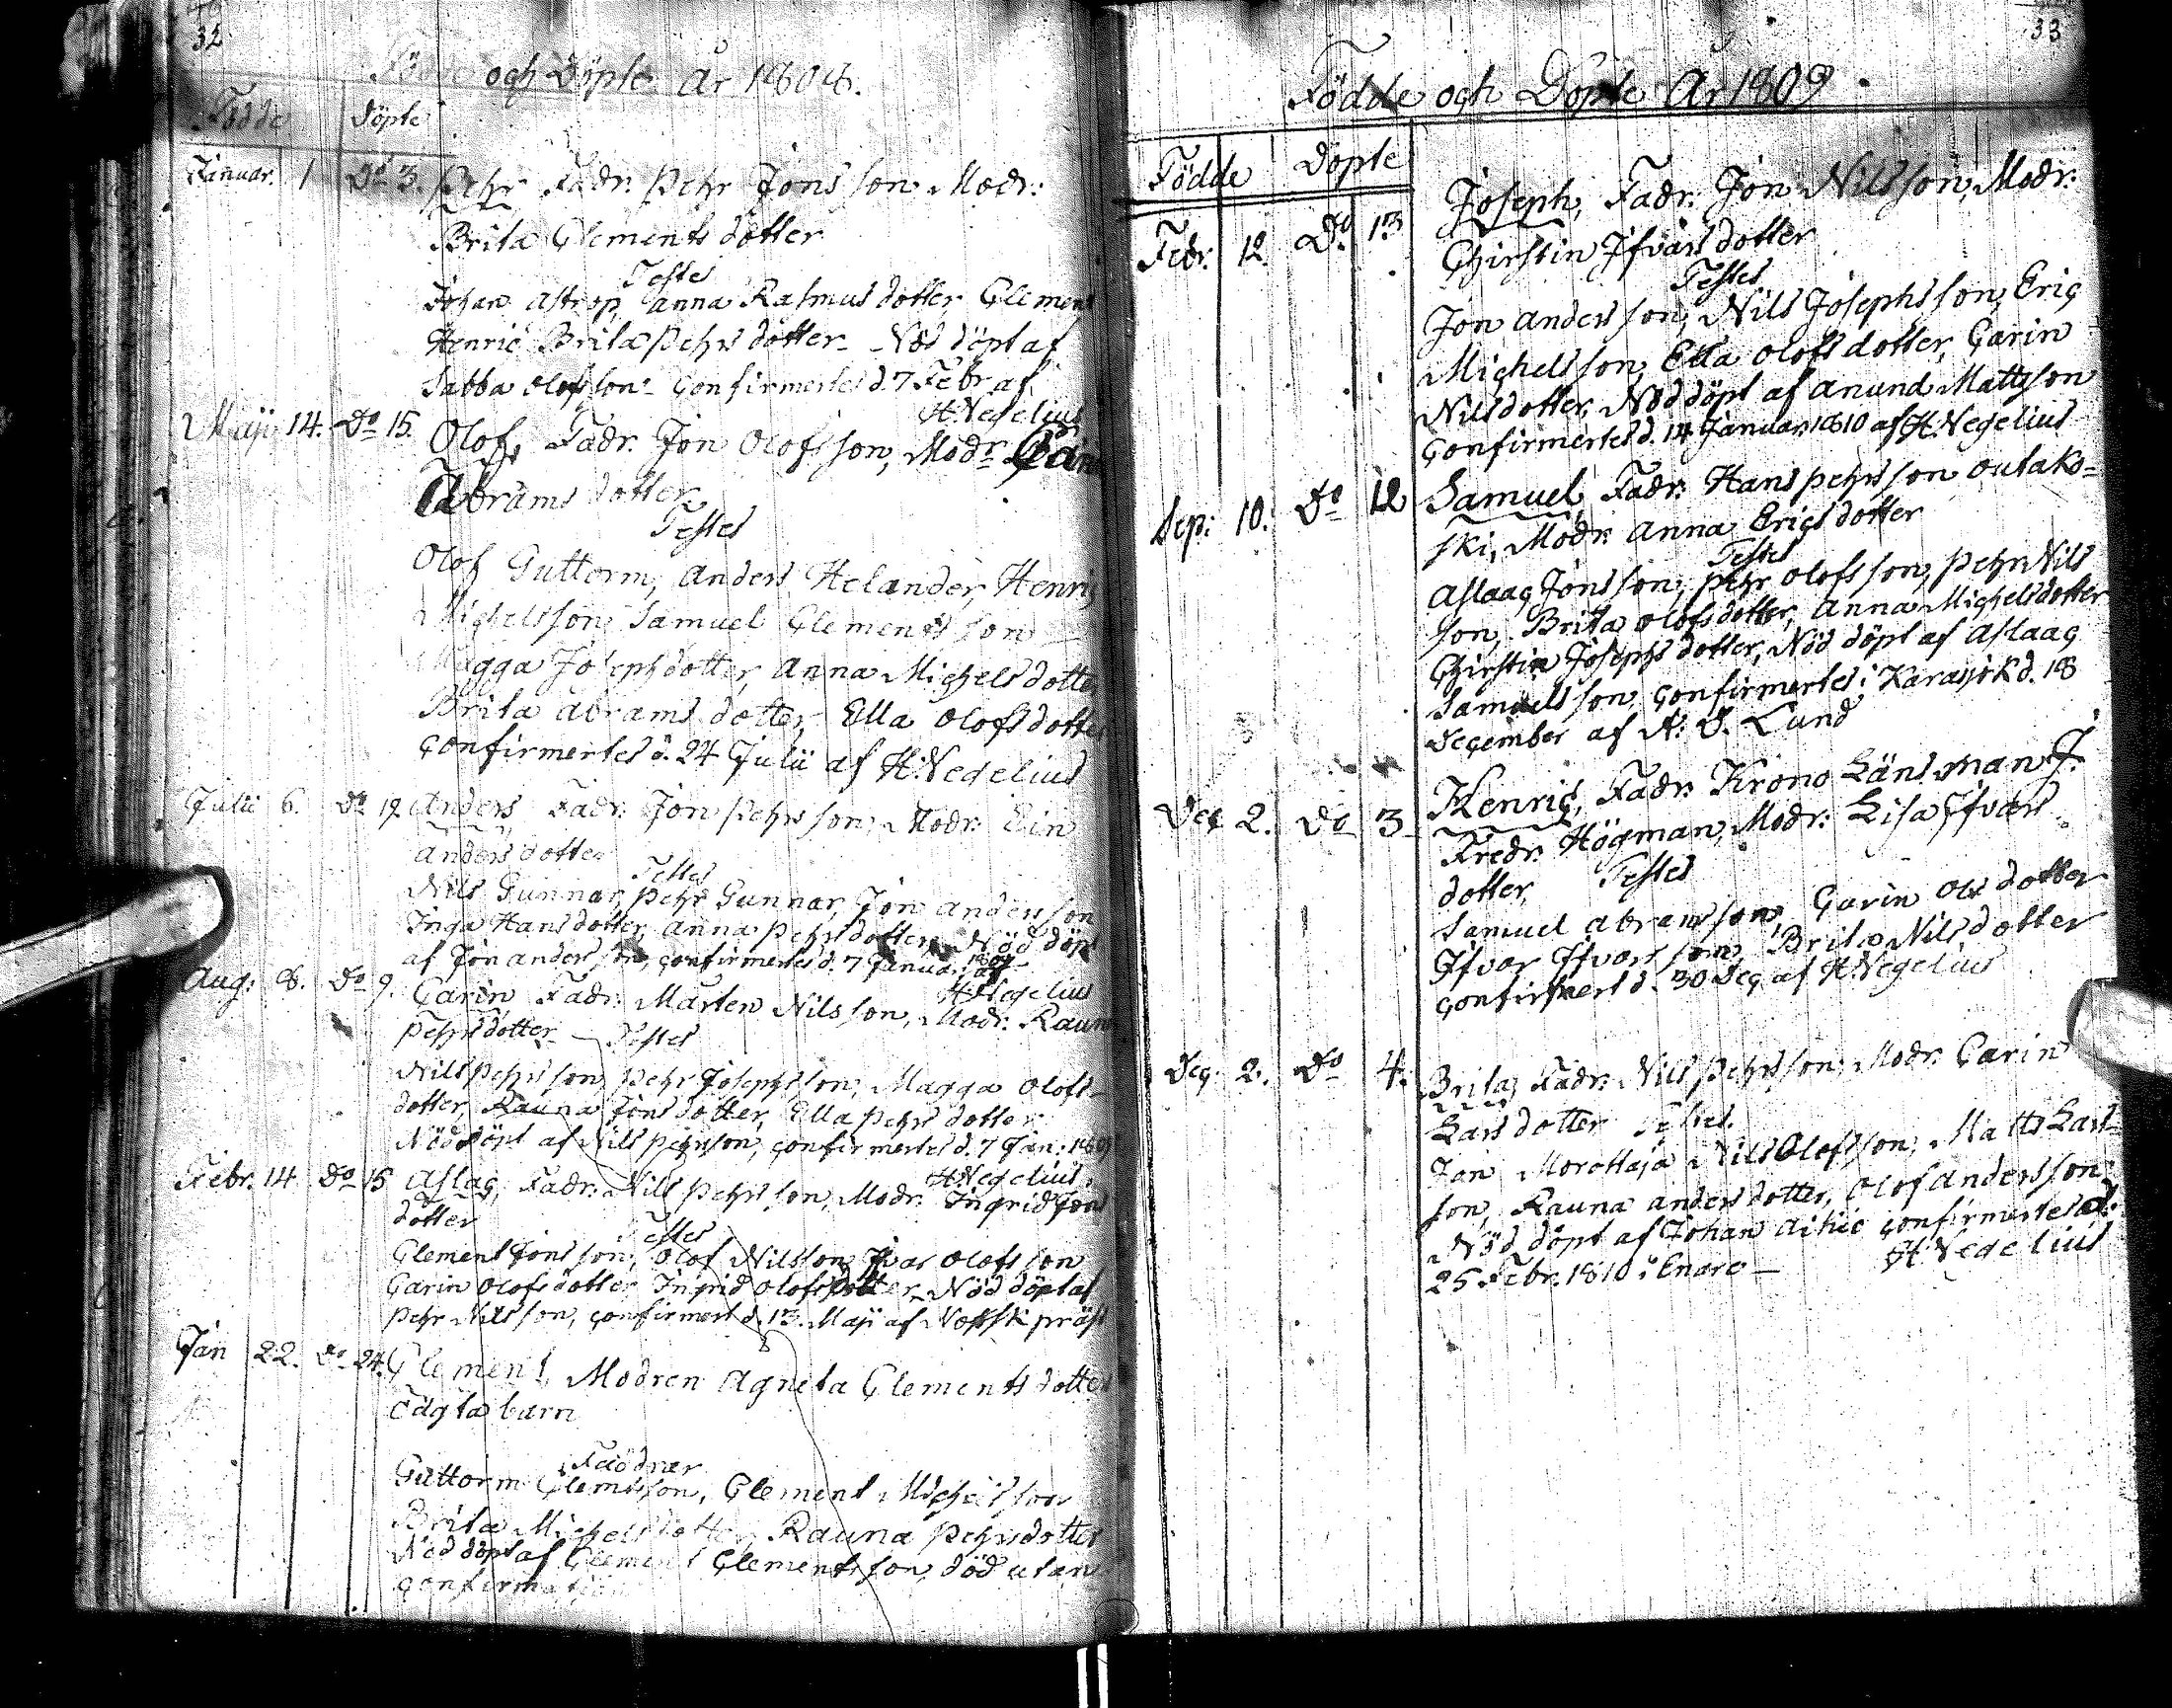 32
Födde och Döpte År 1808.
Födde Döpte
Januar. 1 Do 3. Pehr Fadr. Pehr Jonsson, Modr:
Brita Clements dotter
Testes
Johan Astrop, Anna Rasmus dotter, Clement
Henric Brita Pehrs dotter Nöd döpt af
Sabba Olofsson Confirmertes d. 7 Febr af
H. Wegelius
Maji 14. Do 15. Olof, Fadr. Jon Olofsson, Modr
Abrams dotter
Testes
Olof Guttorm, Anders Helander, Henric
Michelsson, Samuel Clementsson
Magga Josephsdotter, Anna Michelsdotter
Brita Abrams dotter, Ella Olofsdotter
Confirmertes d. 24 Julii af H. Wegelius
Julii 6. Do 19. Anders Fadr. Jon Pehrsson, Modr. Elin
Anders dotter
Testes
Nils Gunnar, Pehr Gunnar, Jon Andersson
Inga Hansdotter, Anna Pehrsdotter, Nöd döpt
af Jon Andersson, Confirmertes d. 7 Januar. 1809 af
H. Wegelius
Aug: 8. Do 9. Carin Fadr. Mårten Nilsson, Modr. Rauna
Pehrsdotter Testes
Nils Pehrsson, Pehr Josephsson, Magga Olofs-
dotter, Rauna Jons dotter, Ella Pehrs dotter
Nöddöpt af Nils Pehrsson, Confirmertes d. 7 Jan: 1809
H. Wegelius.
Febr. 14 Do 15 Aslac, Fadr. Nils Pehrsson, Modr. Ingrid Jons
dotter
Testes
Clement Jonsson, Olof Nilsson, Ifvar Olofsson
Carin Olofsdotter Ingrid Olofsdotter, Nöd döpt af
Pehr Nilsson, Confirmert d. 13. Maji af Norsk präst
Jan 22. Do 24. Clement, Modren Agneta Clementsdotter
oägta barn
Faddrar
Guttorm Clemtsson, Clement Michelsson
Brita Michelsdotter, Rauna Pehrsdotter
Nöd döpt af Clement Clementsson, död utan
Confirmation
33
Födde och Döpte År 1809.
Födde Döpte
Febr. 12 Do 13 Joseph, Fadr. Jon Nilsson, Modr:
Christin Ifvars dotter
Testes
Jon Andersson, Nils Josephsson, Eric
Michelsson, Ella Olofs dotter, Carin
Nilsdotter, Nöd döpt af Anund Mattsson
Confirmertes d. 14 Januar. 1810 af H. Wegelius
Sep: 10. Do 12 Samuel, Fadr: Hans Pehrsson Outako-
ski, Modr. Anna Erics dotter
Testes
Aslaac Jonsson, Pehr Olofsson, Pehr Nils
son, Brita Olofsdotter, Anna Michelsdotter
Christin Josephs dotter, Nöd döpt af Aslaac
Samuelsson, Confirmertes i Karasjok d. 18
December af N: D. Lund
Dec 2. Do 3 Henric, Fadr. Krono Länsman J.
Fredr. Högman, Modr: Lisa Ifvars
dotter, Testes
Samuel Abramsson, Carin Ols dotter
Ifvar Ifvarsson, Brita Nilsdotter
Confirmert d. 30 Dec af H. Wegelius
Dec. 2. Do 4. Brita, Fadr. Nils Pehrsson, Modr. Carin
Lars dotter Testes.
Jon Morottaja Nils Olofsson, Matts Lars-
son, Rauna Anders dotter, Olof Andersson
Nöd döpt af Johan Aikio Confirmertes d.
25 Febr. 1810 i Enare H. Wegelius